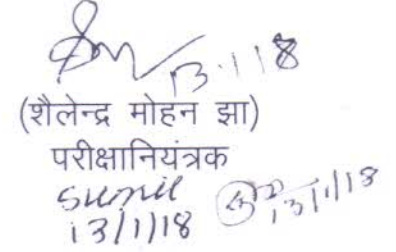 13.1.18
(शैलेन्द्र मोहन झा)
परीक्षानियंत्रक
Sunil
13/1/18 13/1/18